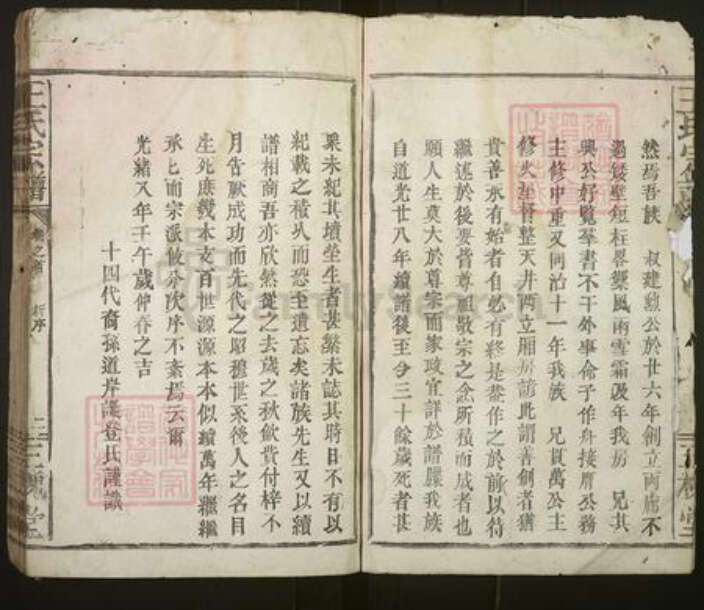 然焉吾族　叔建勲公於廿六年創立兩廊不
過綴壁短柱畧禦風雨雪霜閲年我房　兄其
興公好覽羣書不干外事命予作舟接席公務
主修中重又同治十一年我族　兄貞萬公主
修火土督整天井兩立廂房諺此謂善創者猶
貴善承有始者自必有終是葢作之於前以待
繼述於後要皆尊祖敬宗之念所積而成者也
願人生莫大於尊宗而家政宜詳於譜牒我族
自道光廿八年續譜後至今三十餘歲死者甚
衆未紀其墳塋生者甚繁未誌其時日不有以
紀載之積久而恐至遺忘矣諸族先生又以續
譜相商吾亦欣然從之去歲之秋歛費付梓不
月告厥成功而先代之昭穆世系後人之名目
生死庶幾本支百世源源本本似續萬年繼繼
承匕而宗派攸分次序不紊焉云爾
光緒八年壬午歲仲春之吉
十四代裔孫道岸誕登氏謹識
王氏宗譜
卷之首
新序
三槐堂